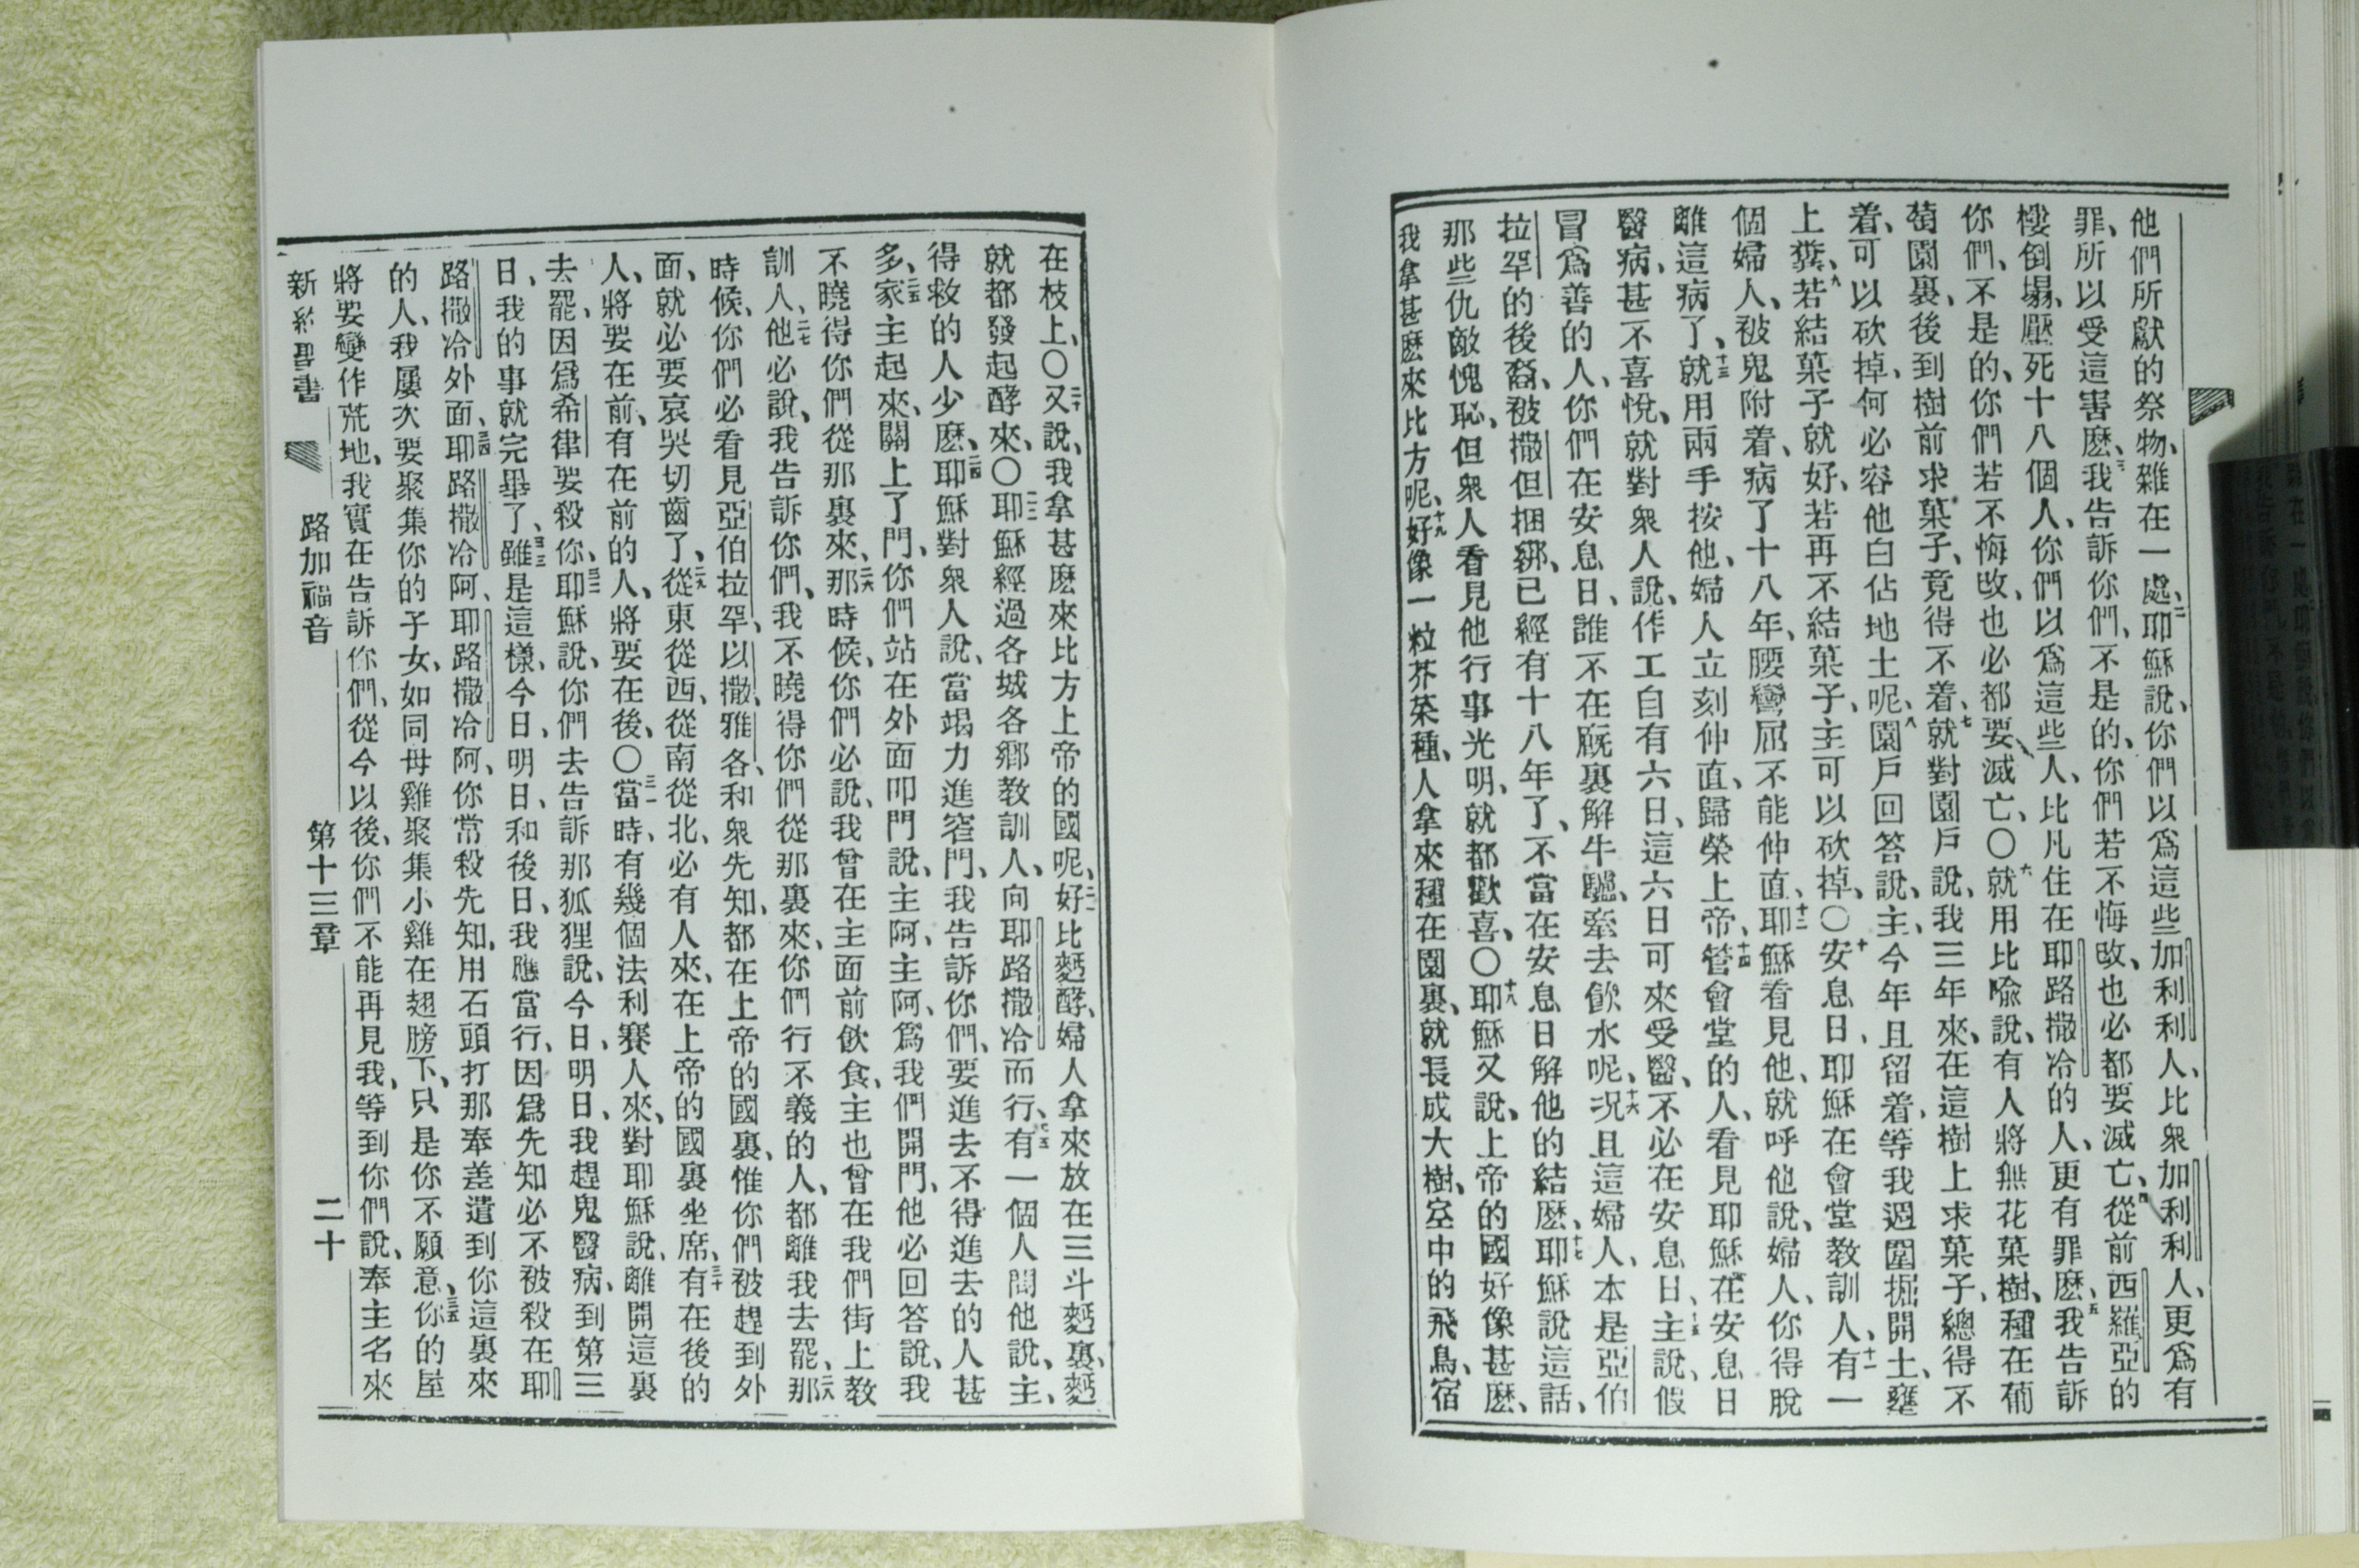 他們所獻的祭物、雜在一處、二耶穌說、你們以爲這些加利利人、比衆加利利人、更爲有
罪、所以受這害麽、三我告訴你們、不是的、你們若不悔改、也必都要滅亡、四從前西羅亞的
樓倒塌、壓死十八個人、你們以爲這些人、比凡住在耶路撒冷的人、更有罪麽、五我告訴
你們、不是的、你們若不悔改、也必都要滅亡、〇六就用比喩說、有人將無花菓樹、種在葡
萄園裏、後到樹前求菓子、竟得不着、七就對園戶說、我三年來、在這樹上求菓子、總得不
着、可以砍掉、何必容他白佔地土呢、八園戶回答說、主、今年且留着、等我週圍掘開土、壅
上糞、九若結菓子就好、若再不結菓子、主可以砍掉、〇十安息日、耶穌在會堂教訓人、十一有一
個婦人、被鬼附着、病了十八年、腰彎屈不能伸直、十二耶穌看見他、就呼他說、婦人、你得脫
離這病了、十三就用兩手按他、婦人立刻伸直、歸榮上帝、十四管會堂的人、看見耶穌在安息日
醫病、甚不喜悅、就對衆人說、作工自有六日、這六日可來受醫、不必在安息日、十五主說、假
冒爲善的人、你們在安息日、誰不在廐裏解牛驢、牽去飮水呢、十六況且這婦人、本是亞伯
拉罕的後裔、被撒但捆綁、已經有十八年了、不當在安息日解他的結麽、十七耶穌說這話、
那些仇敵愧恥、但衆人看見他行事光明、就都歡喜、〇十八耶穌又說、上帝的國好像甚麽、
我拿甚麽來比方呢、十九好像一粒芥菜種、人拿來種在園裏、就長成大樹、空中的飛鳥、宿
在枝上、〇二十又說、我拿甚麽來比方上帝的國呢、二一好比麪酵、婦人拿來放在三斗麪裏、麪
就都發起酵來、〇二二耶穌經過各城各鄉教訓人、向耶路撒冷而行、有一個人問他說、主、
得救的人少麽、二四耶穌對衆人說、當竭力進窄門、我告訴你們、要進去不得進去的人甚
多、二五家主起來、關上了門、你們站在外面叩門說、主阿、主阿、爲我們開門、他必回答說、我
不曉得你們從那裏來、二六那時候、你們必說、我曾在主面前飮食、主也曾在我們街上教
訓人、二七他必說、我告訴你們、我不曉得你們從那裏來、你們行不義的人、都離我去罷、二八那
時候、你們必看見亞伯拉罕、以撒、雅各、和衆先知、都在上帝的國裏、惟你們被趕到外
面、就必要哀哭切齒了、二九從東從西、從南從北、必有人來、在上帝的國裏坐席、三十有在後的
人、將要在前、有在前的人、將要在後、〇三一當時、有幾個法利賽人來、對耶穌說、離開這裏
去罷、因爲希律要殺你、三二耶穌說、你們去告訴那狐狸說、今日、明日、我趕鬼醫病、到第三
日、我的事就完畢了、三三雖是這樣、今日、明日、和後日、我應當行、因爲先知必不被殺在耶
路撒冷外面、三四耶路撒冷阿、耶路撒冷阿、你常殺先知、用石頭打那奉差遣到你這裏來
的人、我屢次要聚集你的子女、如同母雞聚集小雞在翅膀下、只是你不願意、三五你的屋
將要變作荒地、我實在告訴你們、從今以後、你們不能再見我、等到你們說、奉主名來
新約聖書 路加福音 第十三章 二十